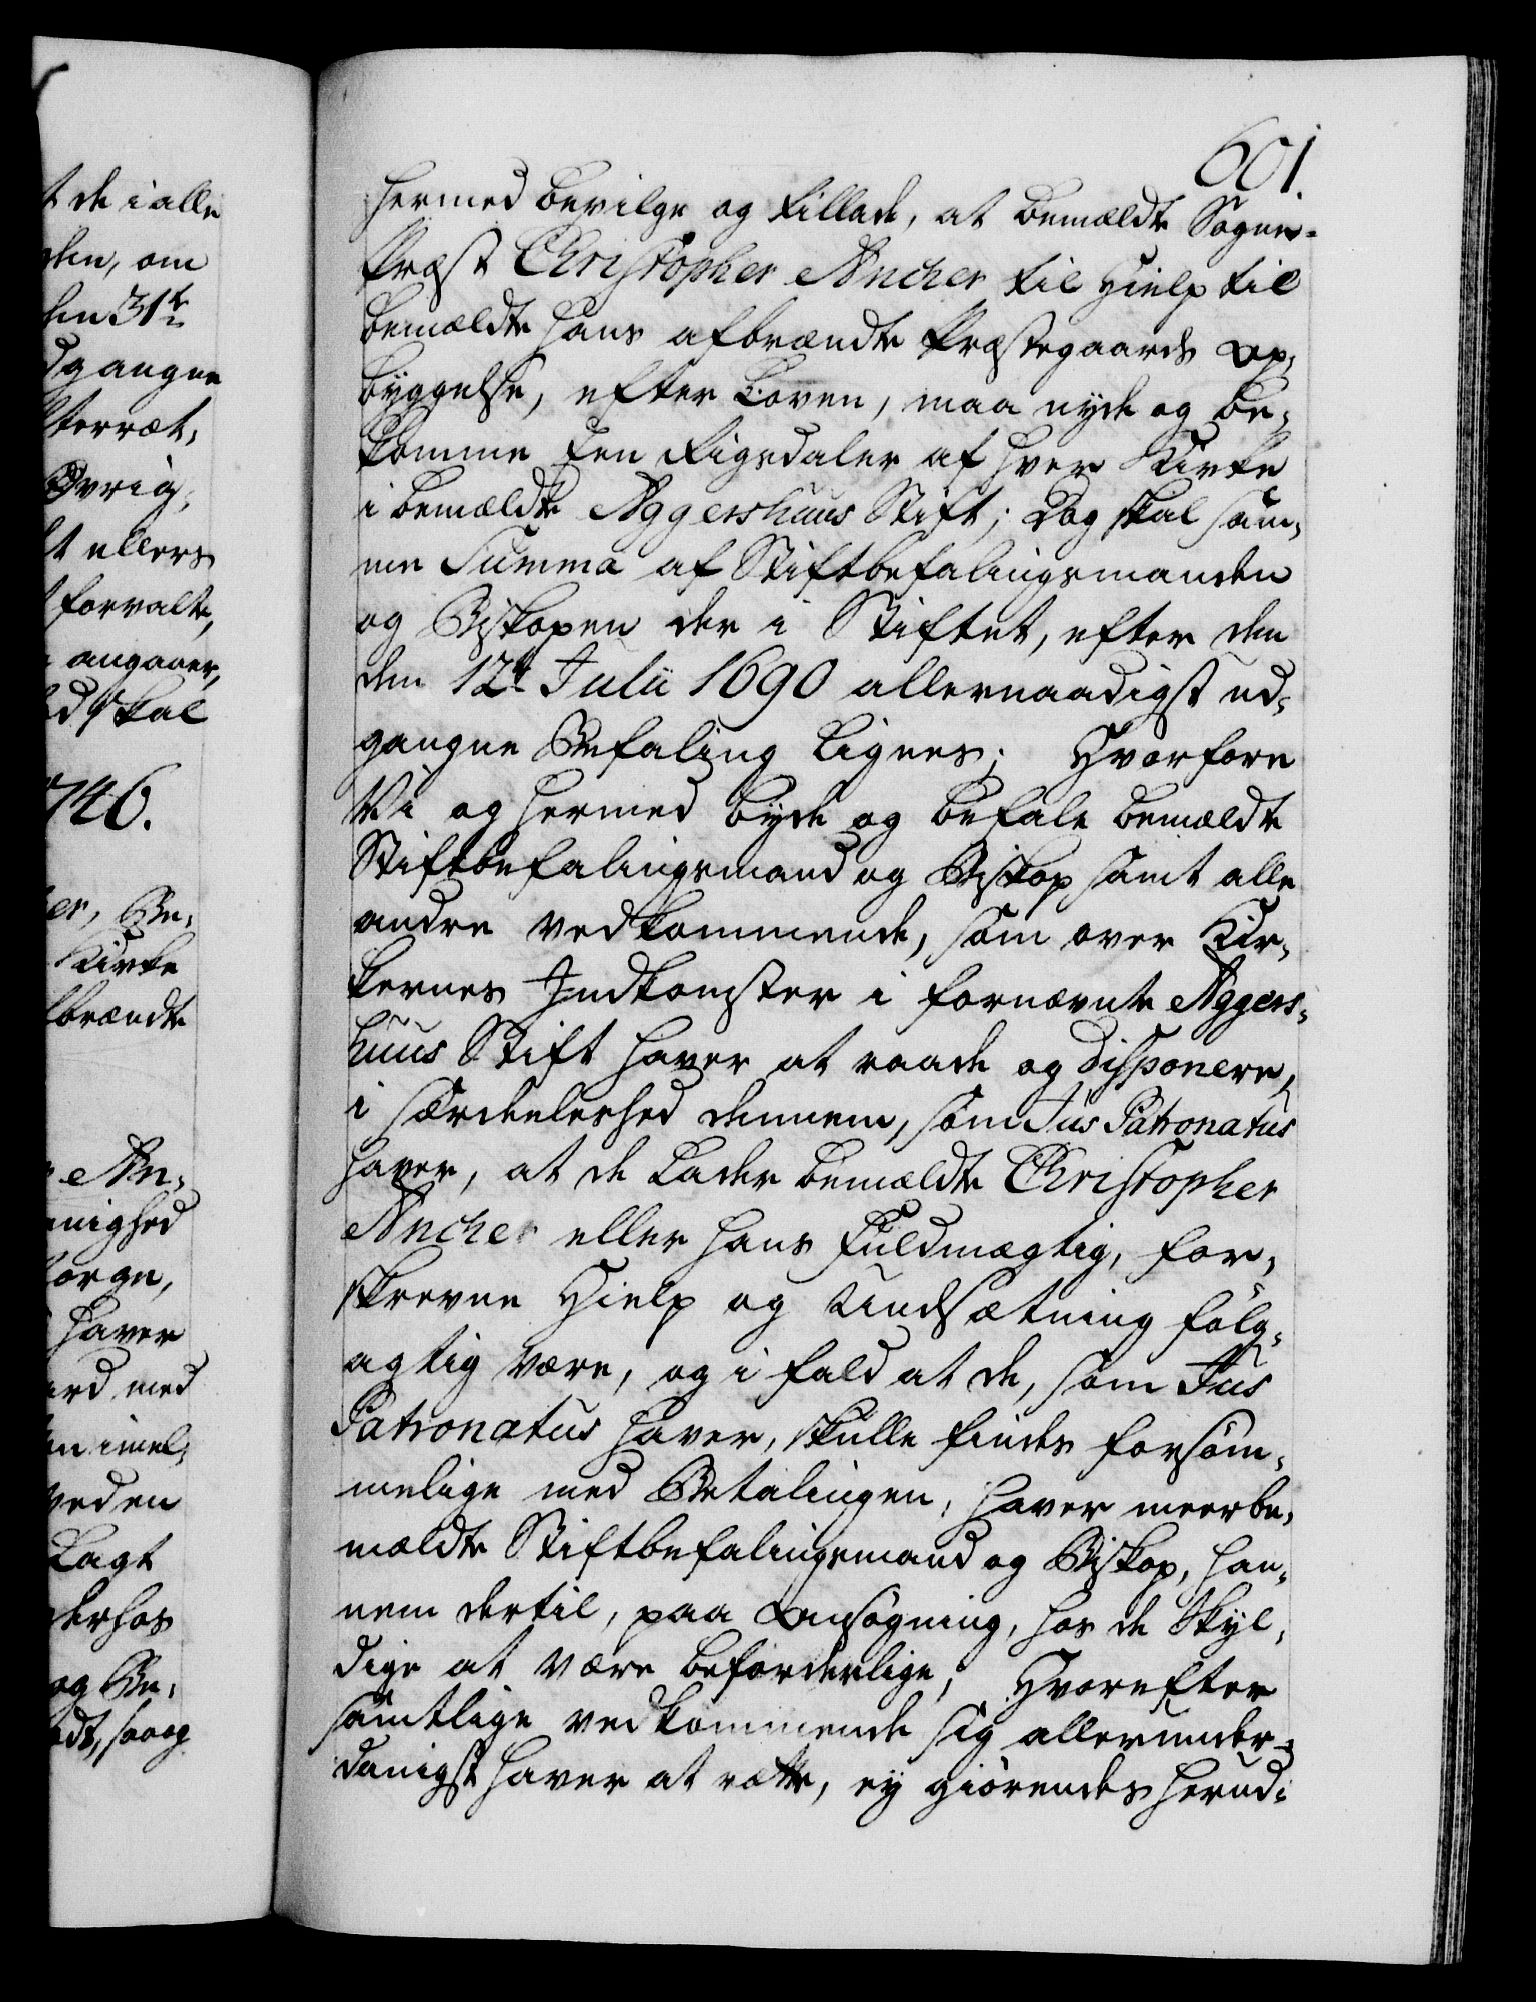 601.
hermed bevilge og tillade, at bemældte Sogne-
Præst Christopher Ancher til Hielp til
bemældte hans afbrændte Præstegaards Op,
byggelse, efter Loven, maa nyde og be,
komme Een Rigsdaler af hver Kirke
i bemældte Aggershuus Stift; Dog skal sam,
me Summa af Stiftbefalingsmanden
og Biskopen der i Stiftet, efter den
den 12te Julii 1690 allernaadigst ud,
gangne Befaling Lignes; Hvorfore
Vi og hermed byde og befale bemældte
Stiftbefalingsmand og Biskop samt alle
andre vedkommende, som over Kir,
kernes Indkomster i fornævnte Aggers,
huus Stift haver at raade og disponere,
i særdeeleshed dennem, som Jus Patronatus
haver, at de Lader bemældte Christopher
Ancher eller hans Fuldmægtig, for,
skrevne Hielp og Undsætning følg,
agtig være, og i fald at de, som Jus
Patronatus haver, skulle findes forsøm,
melige med Betalingen, haver meerbe,
mældte Stiftbefalingsmand og Biskop, han,
nem dertil, paa Ansøgning, hos de Skyl,
dige at være beforderlige; Hvorefter
samtlige vedkommende sig allerunder-
danigst haver at rætte, ey giørendes herud,
t de i alle
den, om
den 31te
dgangne
terræt,
Øvrig,
t ellers
forvalte,
angaaer,
skal
1746.
er, Be,
Kirke
brændte
An,
nighed
orge,
haver
rd med
imel,
ved en
Lagt
derhos
og Be,
dt, saa og